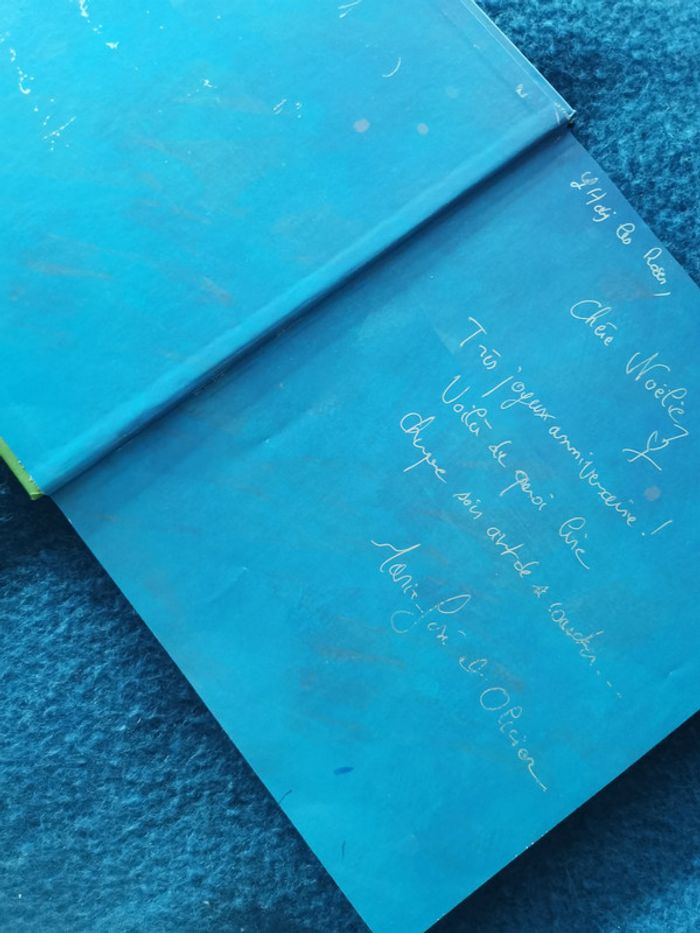 L'Haÿ les Roses,
Chère Noélie,
Très joyeux anniversaire !
Voilà de quoi lire
chaque soir avant de se coucher...
Marie-Jo et Olivier